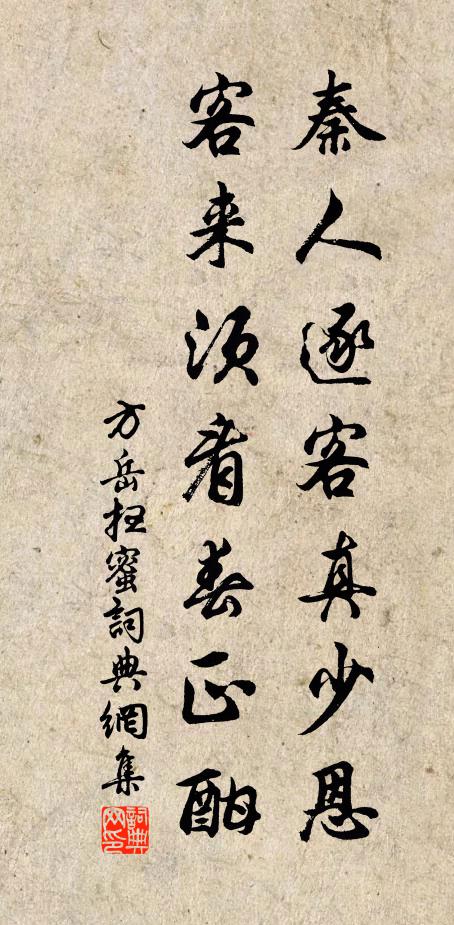 秦人逐客真少恩
客来须看春正酣
方岳蜜詞典網集
詞典网印